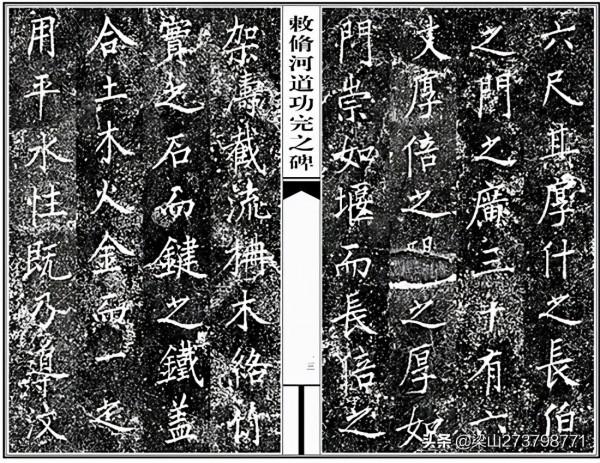 六尺其厚什之長伯
之門之廣三十有六
丈厚倍之之厚如
門崇如堰而長倍之
敕脩河道功完之碑
三
架濤截流柵木絡竹
實之石而鍵之鐵蓋
合土木火金而一之
用平水性既乃導汶
头条 @梁山273798771